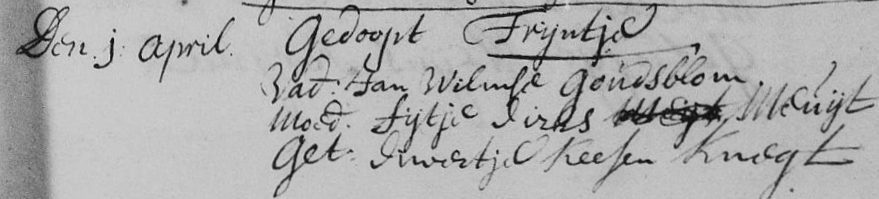 Den. j. April. Gedoopt Trijntje
Vad: Jan Wilmse Goudsblom.
Moed. Sijtje dirks Meuijt
Get: diwertje Keesen Knegt